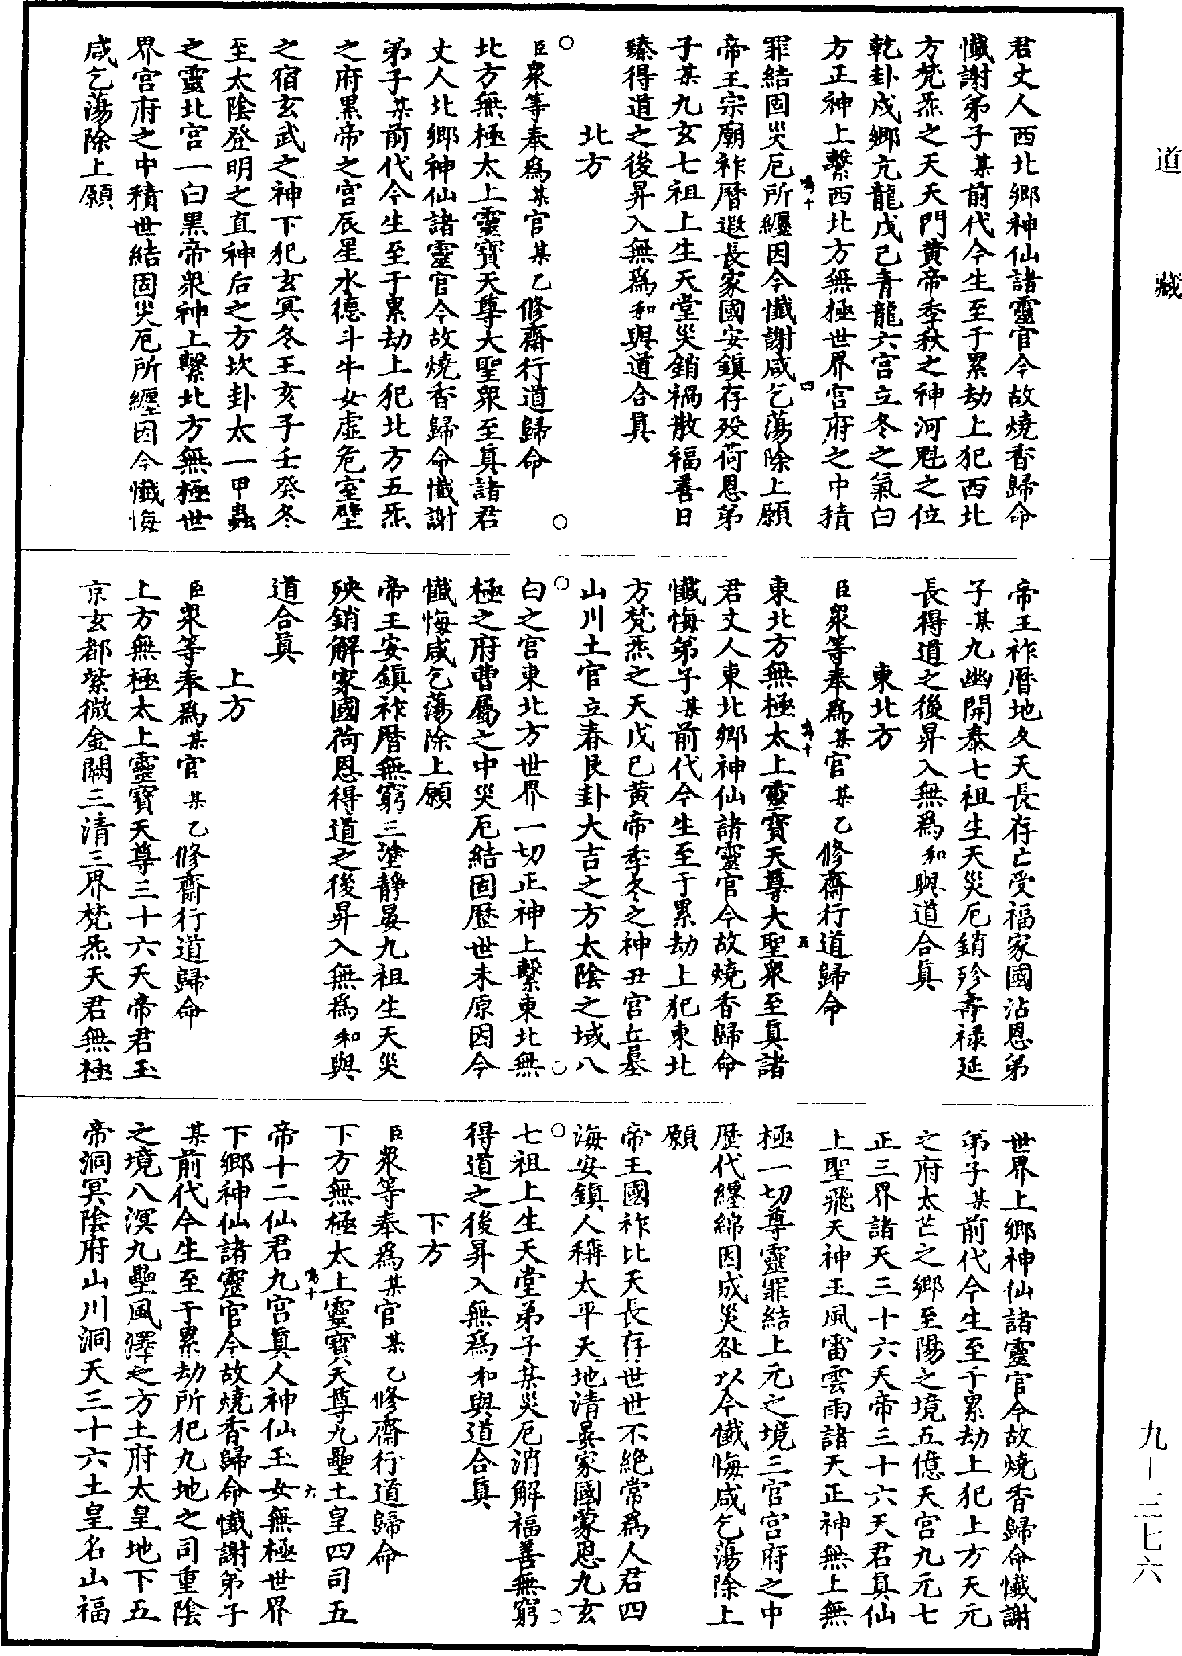 道藏
君丈人西北鄉神仙諸靈官今故燒香歸命
懺謝弟子某前代今生至于累劫上犯西北
方梵炁之天天門黃帝季秋之神河魁之位
乾卦戌鄉亢龍戊己青龍六宮立冬之氣白
方正神上繫西北方無極世界宮府之中積
罪結固災厄所纏因今懺謝咸乞蕩除上願
帝王宗廟祚曆遐長家國安鎮存歿荷恩弟
子某九玄七祖上生天堂災銷禍散福善日
臻得道之後昇入無爲和與道合真
北方
臣衆等奉爲某官某乙修齋行道歸命
北方無極太上靈寶天尊大聖衆至真諸君
丈人北鄉神仙諸靈官今故燒香歸命懺謝
弟子某前代今生至于累劫上犯北方五炁
之府黑帝之宮辰星水德斗牛女虛危室壁
之宿玄武之神下犯玄冥冬王亥子壬癸冬
至太陰登明之直神后之方坎卦太一甲蟲
之靈北宮一白黑帝衆神上繫北方無極世
界宮府之中積世結固災厄所纏因今懺悔
咸乞蕩除上願
帝王祚曆地久天長存亡受福家國沾恩弟
子某九幽開泰七祖生天災厄銷殄壽祿延
長得道之後昇入無爲和與道合真
東北方
臣衆等奉爲某官某乙修齋行道歸命
東北方無極太上靈寶天尊大聖衆至真諸
君丈人東北鄉神仙諸靈官今故燒香歸命
懺悔弟子某前代今生至于累劫上犯東北
方梵炁之天戊己黃帝季冬之神丑宮丘墓
山川土官立春艮卦大吉之方太陰之域八
白之宮東北方世界一切正神上繫東北無
極之府曹屬之中災厄結固歷世未原因今
懺悔咸乞蕩除上願
帝王安鎮祚曆無窮三塗靜晏九祖生天災
殃銷解家國荷恩得道之後昇入無爲和與
道合真
上方
臣衆等奉爲某官某乙修齋行道歸命
上方無極太上靈寶天尊三十六天帝君玉
京玄都紫微金闕三清三界梵炁天君無極
世界上鄉神仙諸靈官今故燒香歸命懺謝
弟子某前代今生至于累劫上犯上方天元
之府太芒之鄉至陽之境五億天宮九元七
正三界諸天三十六天帝三十六天君真仙
上聖飛天神王風雷雲雨諸天正神無上無
極一切尊靈罪結上元之境三官宮府之中
歷代纏綿因成災咎以今懺悔咸乞蕩除上
願
帝王國祚比天長存世世不絕常爲人君四
海安鎮人稱太平天地清晏家國蒙恩九玄
七祖上生天堂弟子某災厄消解福善無窮
得道之後昇入無爲和與道合真
下方
臣衆等奉爲某官某乙修齋行道歸命
下方無極太上靈寶天尊九壘土皇四司五
帝十二仙君九宮真人神仙玉女無極世界
下鄉神仙諸靈官今故燒香歸命懺謝弟子
某前代今生至于累劫所犯九地之司重陰
之境八溟九壘風澤之方土府太皇地下五
帝洞冥陰府山川洞天三十六土皇名山福
九－三七六